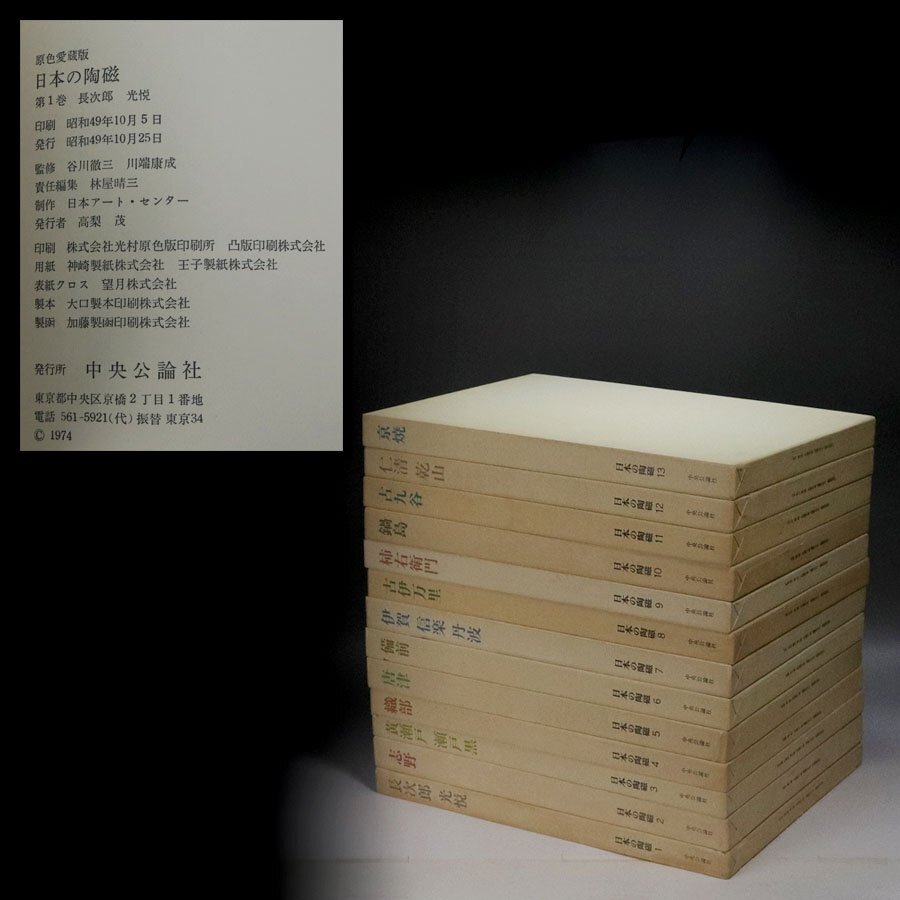 原色愛蔵版
日本の陶磁
第1巻 長次郎 光悦
印刷 昭和49年10月5日
発行 昭和49年10月25日
監修 谷川徹三 川端康成
責任編集 林屋晴三
制作 日本アート・センター
発行者 高梨 茂
印刷 株式会社光村原色版印刷所 凸版印刷株式会社
用紙 神崎製紙株式会社 王子製紙株式会社
表紙クロス 望月株式会社
製本 大口製本印刷株式会社
製函 加藤製函印刷株式会社
発行所 中央公論社
東京都中央区京橋2丁目1番地
電話 561-5921(代) 振替 東京34
© 1974
京焼 日本の陶磁 13 中央公論社
仁清 乾山 日本の陶磁 12 中央公論社
古九谷 日本の陶磁 11 中央公論社
鍋島 日本の陶磁 10 中央公論社
柿右衛門 日本の陶磁 9 中央公論社
古伊万里 日本の陶磁 8 中央公論社
伊賀 信楽 丹波 日本の陶磁 7 中央公論社
備前 日本の陶磁 6 中央公論社
唐津 日本の陶磁 5 中央公論社
織部 日本の陶磁 4 中央公論社
黄瀬戸 瀬戸黒 日本の陶磁 3 中央公論社
志野 日本の陶磁 2 中央公論社
長次郎 光悦 日本の陶磁 1 中央公論社